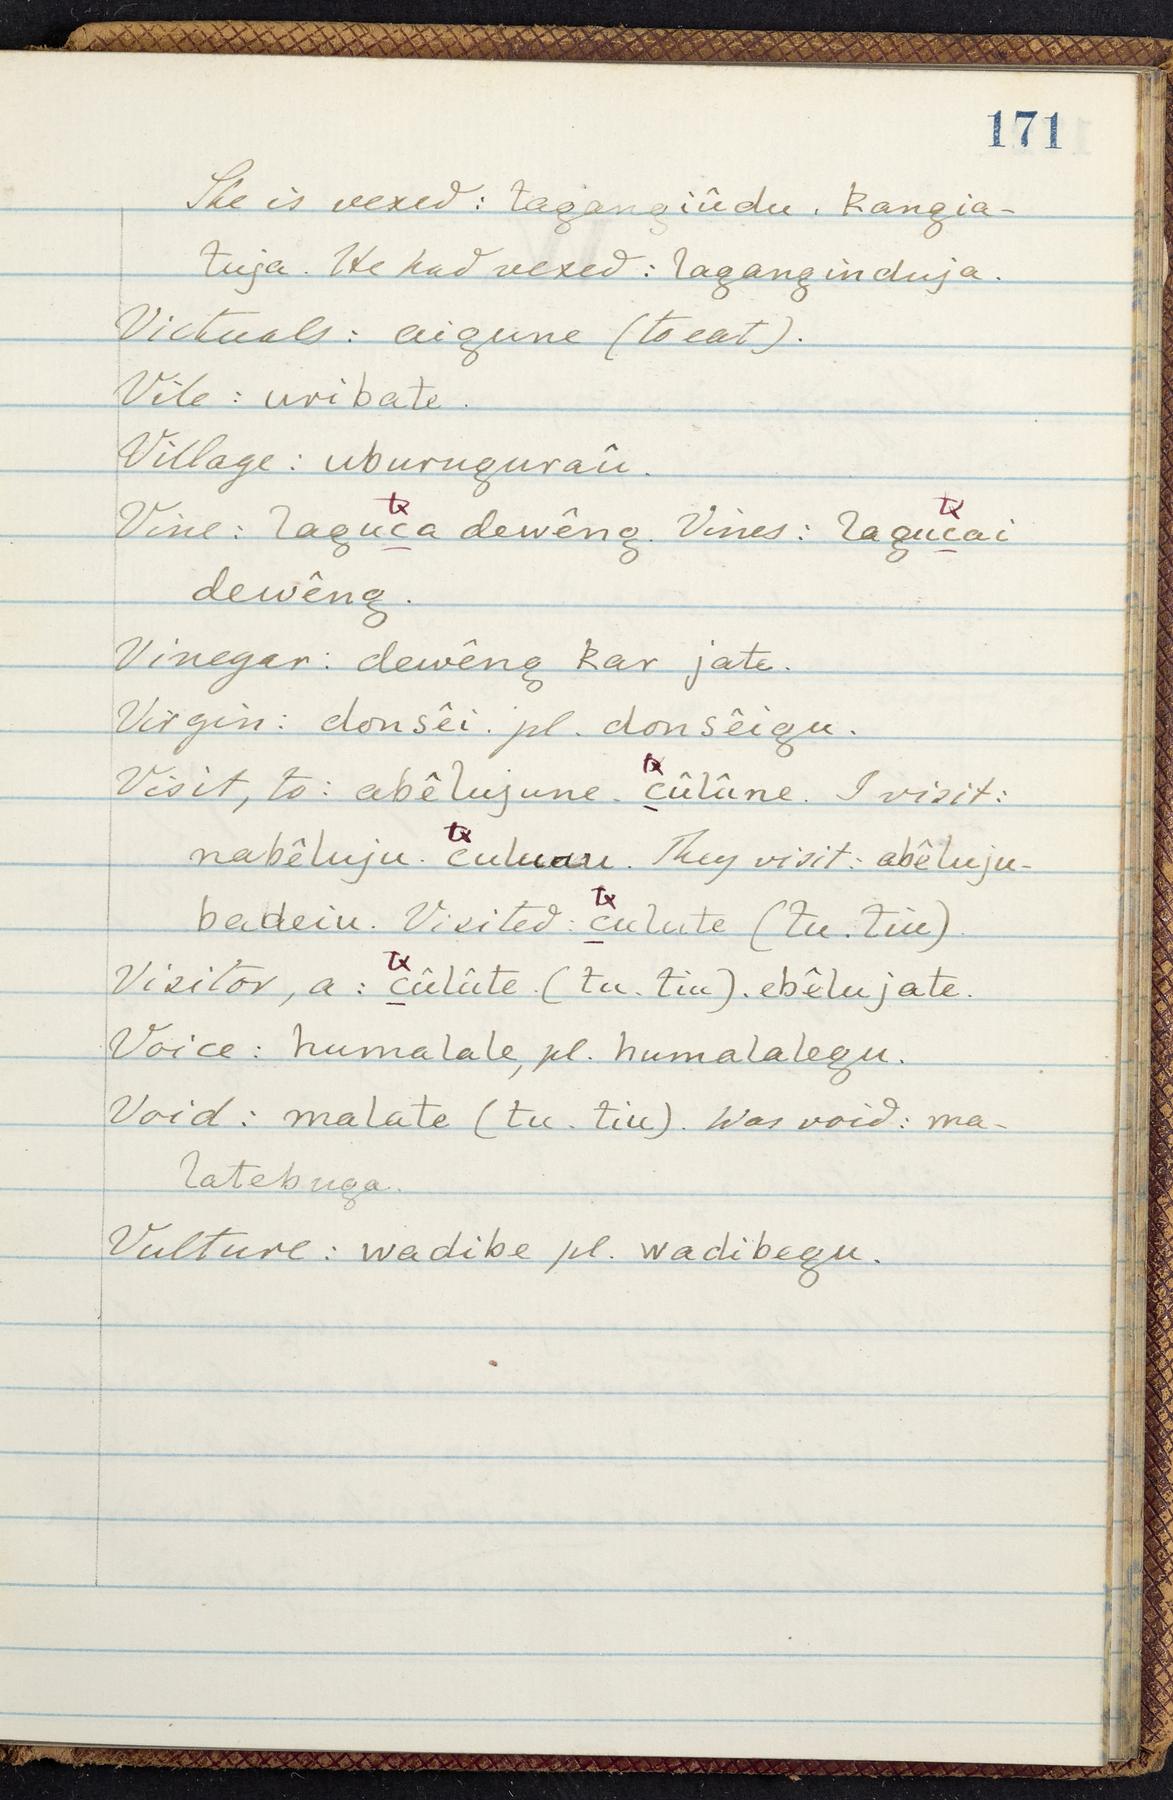 171
She is vexed: tagangiûdu. kangia-
tuja. He had vexed: laganginduja.
Victuals: aigune (to eat).
Vile: uribate.
Village: uburuguraû.
tx tx
Vine: laguca dewêng. Vines: lagucai
dewêng.
Vinegar: dewêng kar jate.
Virgin: donsêi. pl. donsêigu.
tx
Visit, to: abêlujune. cûlûne. I visit:
tx
nabêluju. They visit: abêluju-
tx
badeiu. Visited: culute (tu. tiu).
tx
Visitor, a: cûlûte (tu. tiu). ebêlujate.
Voice: humalale, pl. humalalegu.
Void: malate (tu. tiu). Was void: ma-
latebuga.
Vulture: wadibe pl. wadibegu.